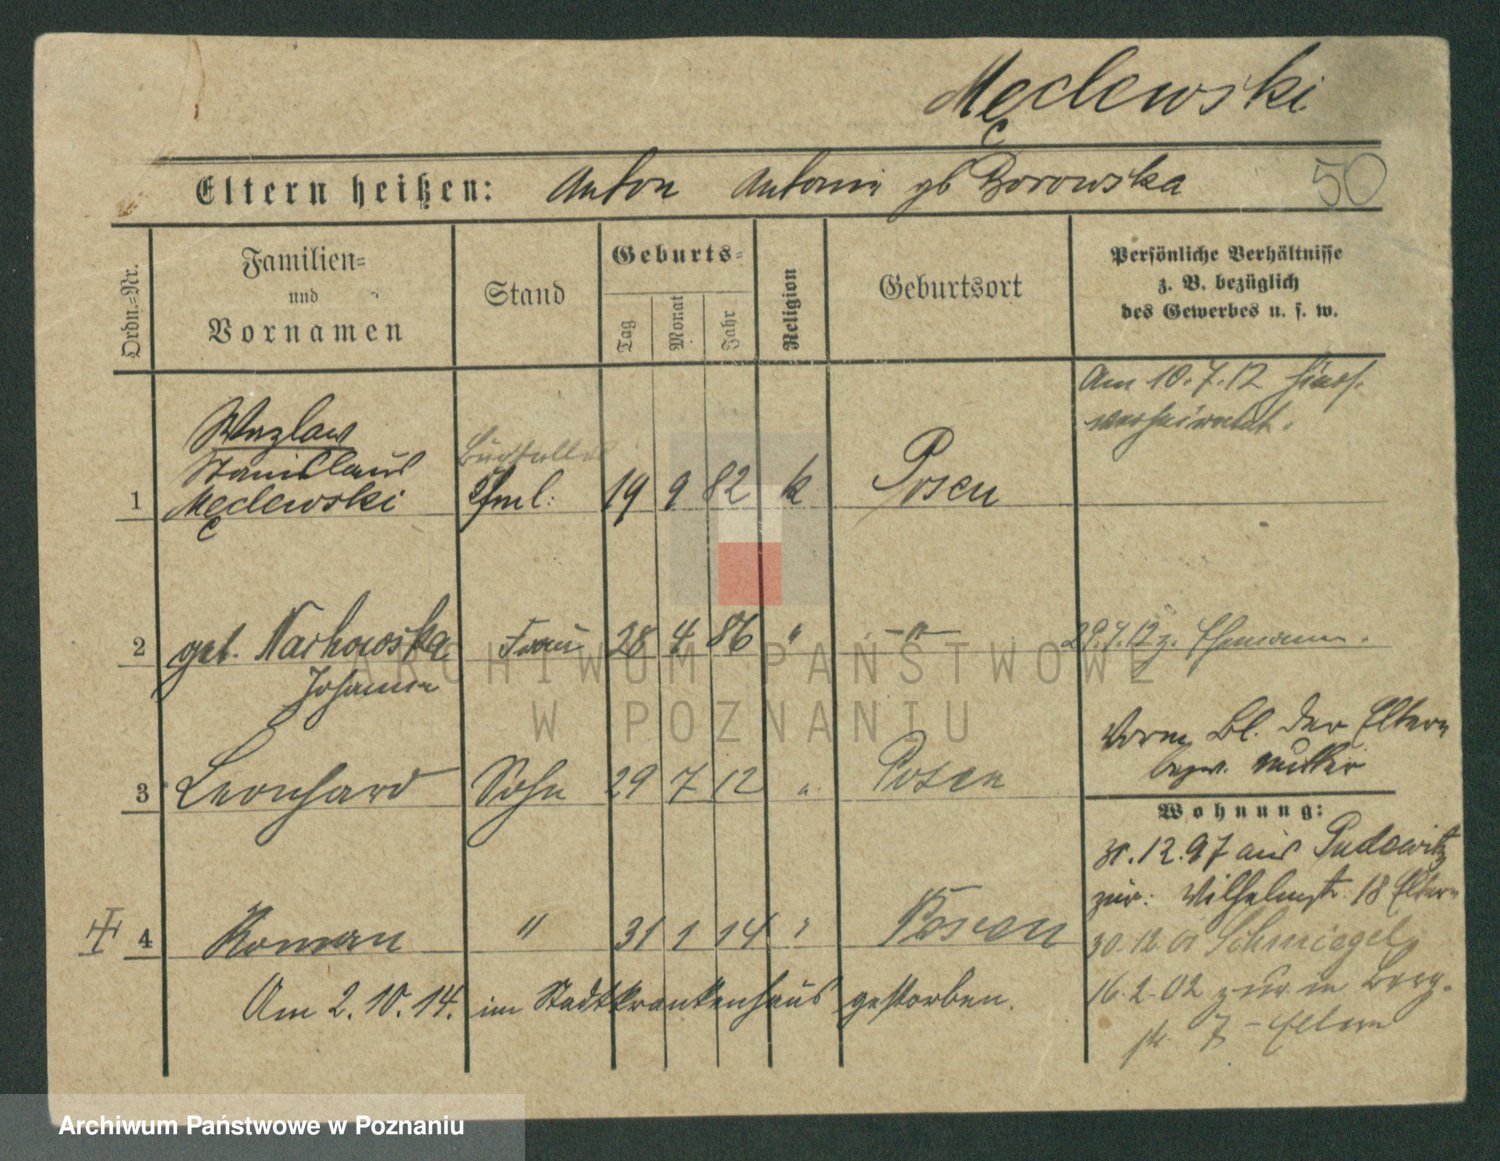 Męclewski
Eltern heißen: Anton Antonie gb Borowska 50
Ordn.-Nr.
Familien- und Vornamen
Stand
Geburts-
Tag
Monat
Jahr
Religion
Geburtsort
Persönliche Verhältnisse
z. B. bezüglich
des Gewerbes u. s. w.
Am 10.7.12 hier
verheiratet.
Wazlaw
Stanislaus
1 Męclewski 19 9 82 k Posen
2 geb. Frau 28 4 86 " – " – 29.7.12 z. Ehemann.
Johanna
Vorm Bl. der Eltern
bezw. Mutter
3 Leonhard Sohn 29 7 12 " Posen
Wohnung:
31.12.97 aus Pudewitz
zur: Wilhelmstr. 18 Eltern
4 Roman " 31 1 14 " Posen
30.12.01 Schmiegel
Am 2.10.14. im Stadtkrankenhaus gestorben.
16.2.02 zur. in Berg-
str. 7 – Eltern
ARCHIWUM PAŃSTWOWE
W POZNANIU
Archiwum Państwowe w Poznaniu